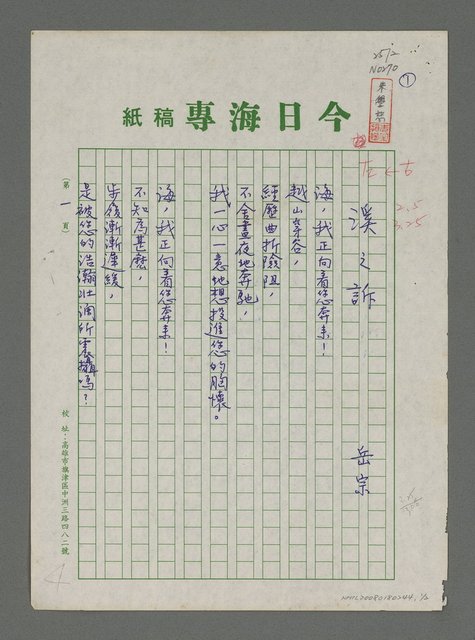 25/2
NO270
①
今日海專稿紙
左←右
2.5
3.25
溪之訴
岳宗
海,我正向著您奔来!
越山穿谷,
經歷曲折險阻,
不舍晝夜地奔馳,
我一心一意地想投進您的胸懷。
海,我正向着您奔来!
不知為甚麼,
步履漸漸遲緩,
是被您的浩瀚壯濶所震懾嗎?
(第一頁)
校址:高雄市旗津區中洲三路四八二號
NMTL20080180244, 1/2